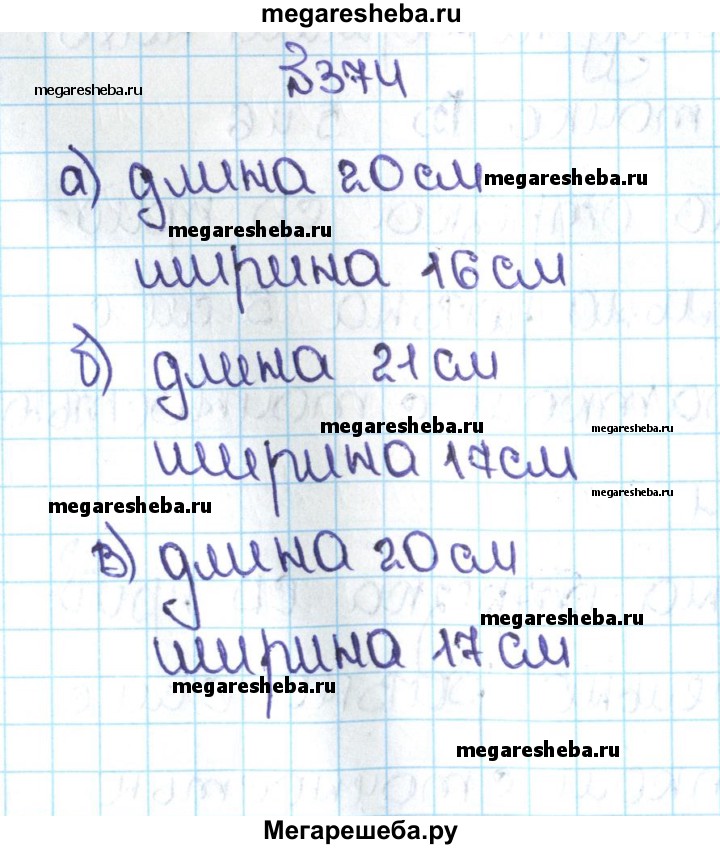 megaresheba.ru
№374
megaresheba.ru
а) длина 20 см
megaresheba.ru
megaresheba.ru
ширина 16 см
б) длина 21 см
megaresheba.ru
megaresheba.ru
ширина 17 см
megaresheba.ru
megaresheba.ru
в) длина 20 см
megaresheba.ru
ширина 17 см
megaresheba.ru
megaresheba.ru
Мегарешеба.ру